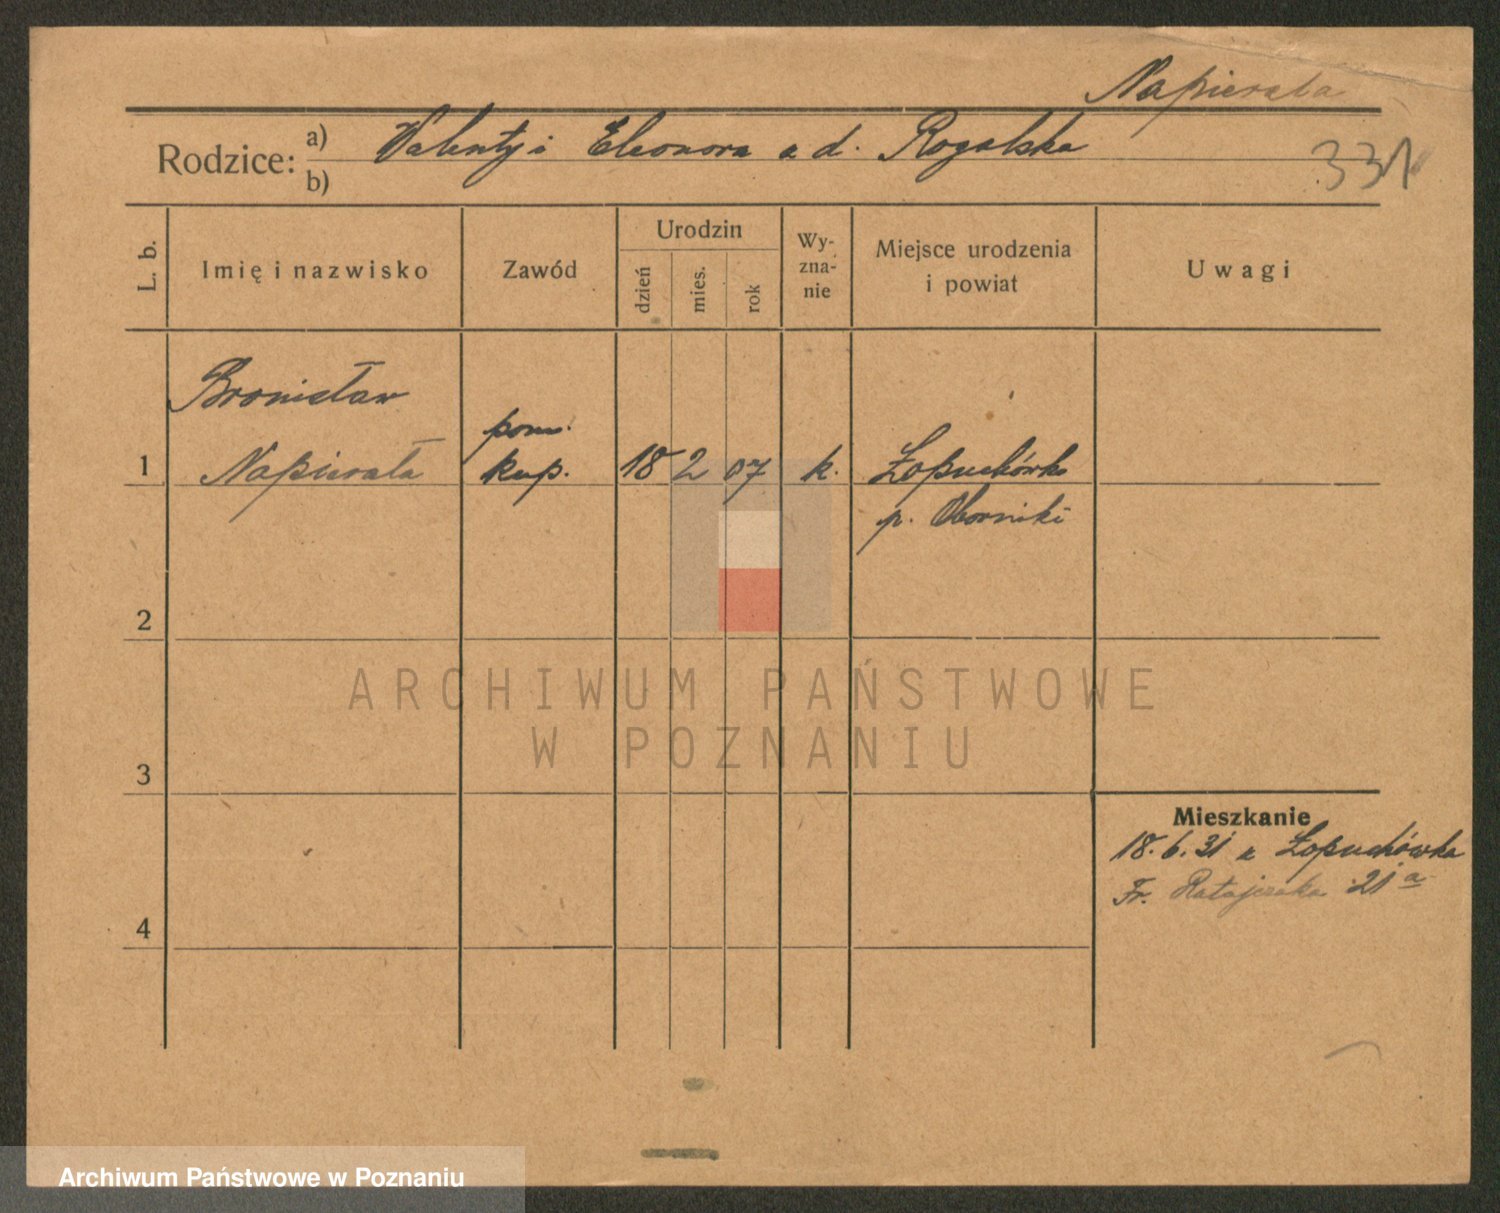 Napierała
Rodzice:
a) Walenty i Eleonora a d. Rogalska
b)
331
L. b.
Imię i nazwisko
Zawód
Urodzin
dzień
mies.
rok
Wy-
zna-
nie
Miejsce urodzenia
i powiat
Uwagi
Bronisław
pom.
1 Napierała kup. 18 2 07 k. Łopuchówko
p. Oborniki
2
ARCHIWUM PAŃSTWOWE
W POZNANIU
3
Mieszkanie
18.6.31 z Łopuchówka
Fr. Ratajczaka 21 a
4
Archiwum Państwowe w Poznaniu